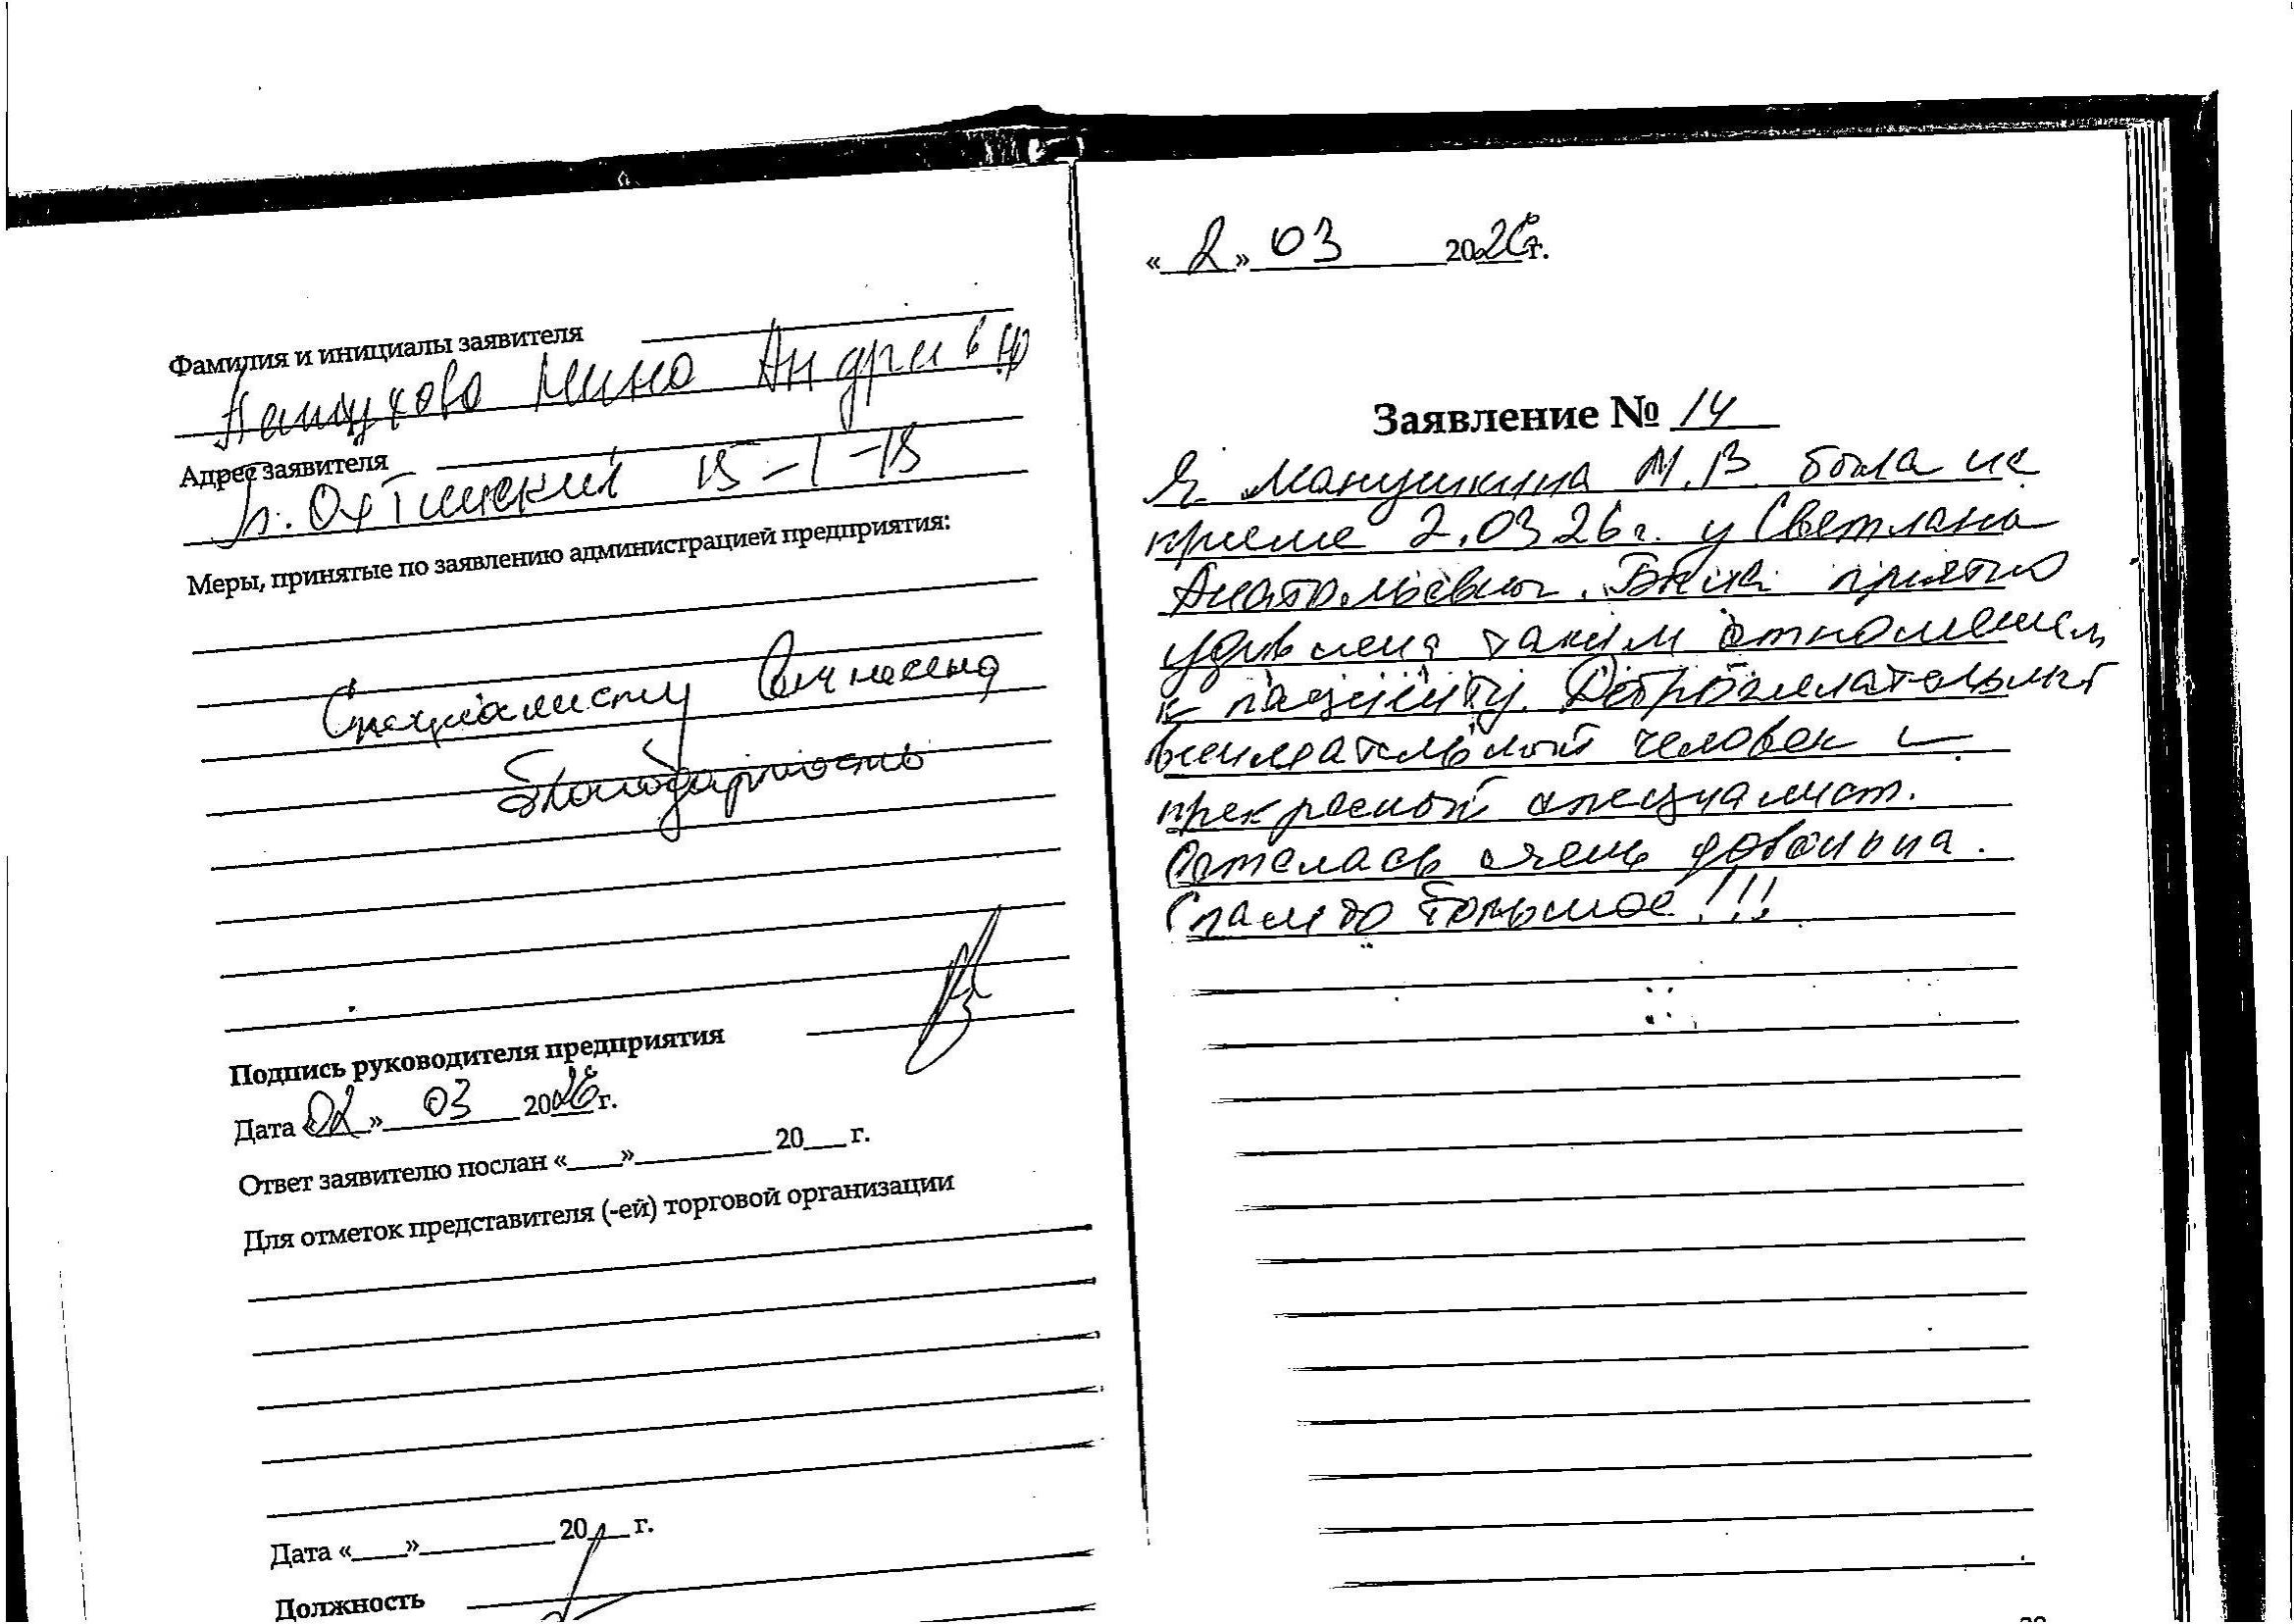 Фамилия и инициалы заявителя
Пащукова Нина Андреевна
Адрес заявителя
п. Охтинский 15-1-13
Меры, принятые по заявлению администрацией предприятия:
Специалисту вынесена
благодарность
Подпись руководителя предприятия
Дата «02» 03 2026 г.
Ответ заявителю послан «___»________ 20___ г.
Для отметок представителя (-ей) торговой организации
Дата «___»________ 20___ г.
Должность
«2» 03 2026 г.
Заявление № 14
Я Манушкина М.В. была на
приеме 2.03 26 г. у Светлана
Анатольевны. Была приятно
удивлена таким отношением
к пациенту. Доброжелательный
внимательный человек и
прекрасный специалист.
Осталась очень довольна.
Спасибо большое!!!